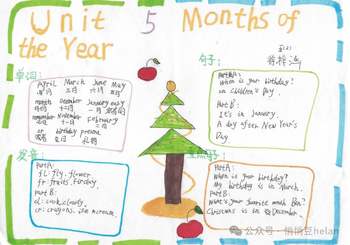 Unit 5 Months of
the Year
单词:
April March June May
四月 三月 六月 五月
month December January
November
February
or birthday present
句子:
PartA:
When is your birthday?
on Children's Day.
Part B:
It's in January.
A day after New Year's
Day.
发音:
PartA:
fl: fly, flower
fr: fruits, friday.
PartB:
cl: cook, clowdy.
cr: crayons, ice acream.
PartA:
When is your birthday?
My birthday is in March.
PartB:
What's your favorite month Ben?
Christmas is in December.
公众号·悄悄豆helan